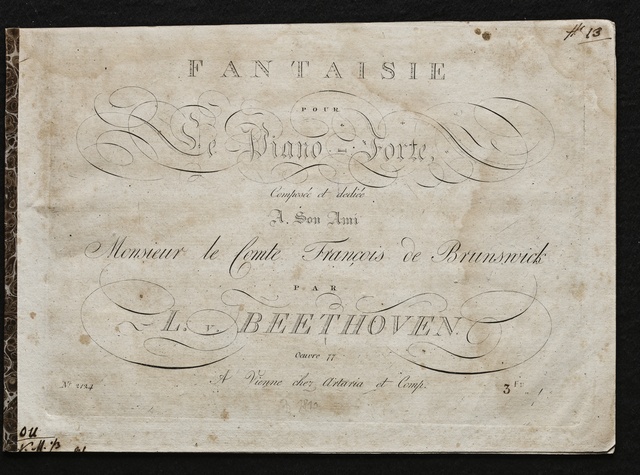 № 13
FANTAISIE
POUR
Le Piano-Forte,
Composée et dediée
A Son Ami
Monsieur le Comte François de Brunswick
PAR
L. v. BEETHOVEN.
Oeuvre 77
A Vienne chez Artaria et Comp.
Nº 2124
3 Fr
OU